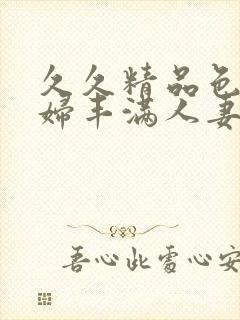 久久精品色
婦丰满人妻
吾心此處心安